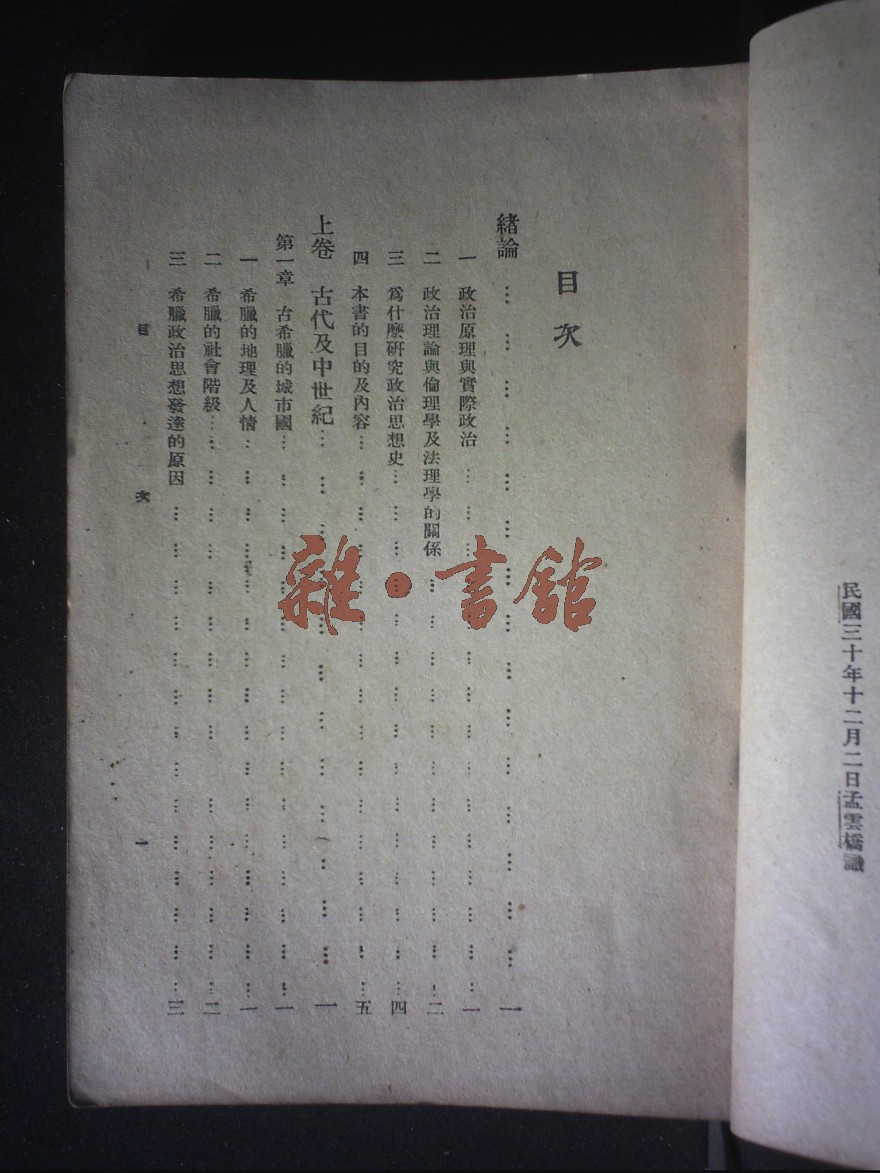 民國三十年十二月二日孟雲橋識
目次
緒論 … … … … … … … … … … … … … … … 一
一 政治原理與實際政治 … … … … … … … … … … 一
二 政治理論與倫理學及法理學的關係 … … … … … … … … 二
三 爲什麽研究政治思想史 … … … … … … … … … … 四
四 本書的目的及內容 … … … … … … … … … … … 五
上卷 古代及中世紀 … … … … … … … … … … … 一
第一章 古希臘的城市國 … … … … … … … … … … … 一
一 希臘的地理及人情 … … … … … … … … … … … 一
二 希臘的社會階級 … … … … … … … … … … … 二
三 希臘政治思想發達的原因 … … … … … … … … … 三
目次 一
雜·書館